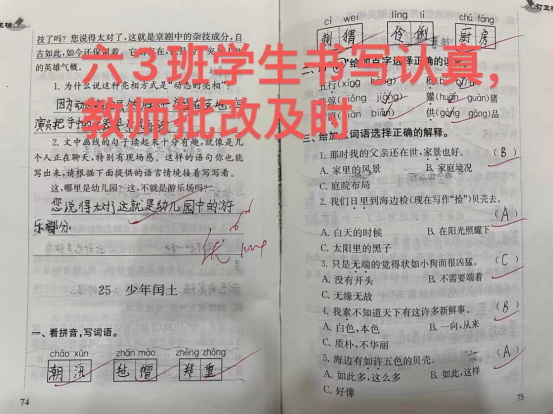 技了吗？您说得太对了，这就是京剧中的杂技成分，自
的英雄气概。
六3班学生书写认真，
教师批改及时
1. 为什么说这种亮相方式是“动态的亮相”？
2. 文中画线的句子读起来十分有趣，就像是几
个人正在聊天，特别有现场感。这样的语句你也能
写出来，请根据下面提供的语言情境接着写写看。
这，哪里是幼儿园？这，不就是游乐场吗？
您说得太对了，这就是幼儿园中的游
乐部分。
优
25 少年闰土
一、看拼音，写词语。
cháo xùn zhān mào zhèng zhòng
朝汛 毡帽 郑重
74
cì wei líng lì chú fáng
刺猬 伶俐 厨房
三、给加点词语选择正确的解释。
1. 那时我的父亲还在世，家景也好。 （B）
A. 家里的风景 B. 家庭境况
C. 庭院布局
2. 我们日里到海边检（现在写作“捡”）贝壳去。
（A）
A. 白天的时候 B. 在阳光照耀下
C. 太阳里的黑子
3. 只是无端的觉得状如小狗而很凶猛。 （C）
A. 没有开头 B. 不需要端着
C. 无缘无故
4. 我素不知道天下有这许多新鲜事。 （B）
A. 白色，本色 B. 一向，从来
C. 质朴，不华丽
5. 海边有如许五色的贝壳。 （A）
A. 如此多，这么多 B. 如此，这样
C. 好像
75